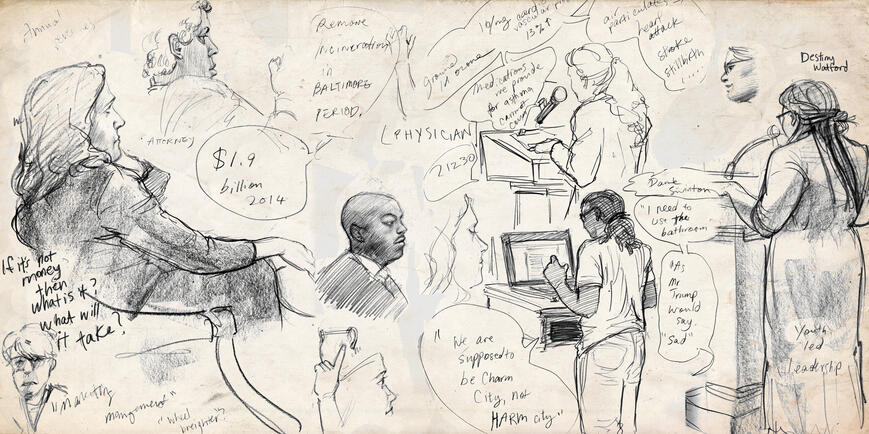 Annual
Remove
incineration
in
BALTIMORE
PERIOD.
ATTORNEY
$1.9
billion
2014
If it's not
money
then
what is it?
what will
it take?
management"
"wheel
Ground
ozone
13%↑
medications
we provide
for asthma
cannot
PHYSICIAN
21230
air
particulates
heart
attack
stroke
stillbirth
....
Destiny
Watford
Dante
Swinton
"I need to
use the
bathroom
"As
Mr
Trump
would
say.
"Sad"
"We are
supposed to
be Charm
City, not
HARM city"
Youth
led
Leadership